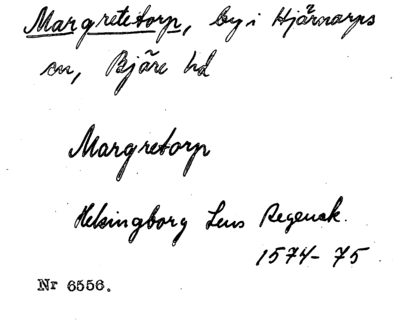 Margretetorp, by i Hjärnarps
sn, Bjäre hd
Margretorp
Helsingborg Lens Regensk.
1574-75
Nr 6556.